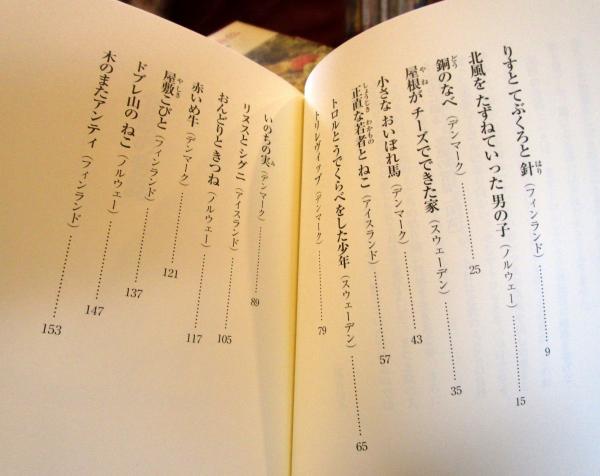 はり
りすと てぶくろと 針（フィンランド）………9
北風を たずねていった 男の子（ノルウェー）………15
どう
銅のなべ（デンマーク）………25
やね
屋根が チーズでできた家（スウェーデン）………35
小さな おいぼれ馬（デンマーク）………43
しょうじき わかもの
正直な若者と ねこ（アイスランド）………57
トロルと うでくらべをした少年（スウェーデン）………65
トリレヴィップ（デンマーク）………79
み
いのちの実（デンマーク）………89
リヌスと シグニ（アイスランド）………105
おんどりと きつね（ノルウェー）………117
赤いめ牛（デンマーク）………121
やしき
屋敷こびと（フィンランド）………137
ドブレ山の ねこ（ノルウェー）………147
木のまたアンティ（フィンランド）………153